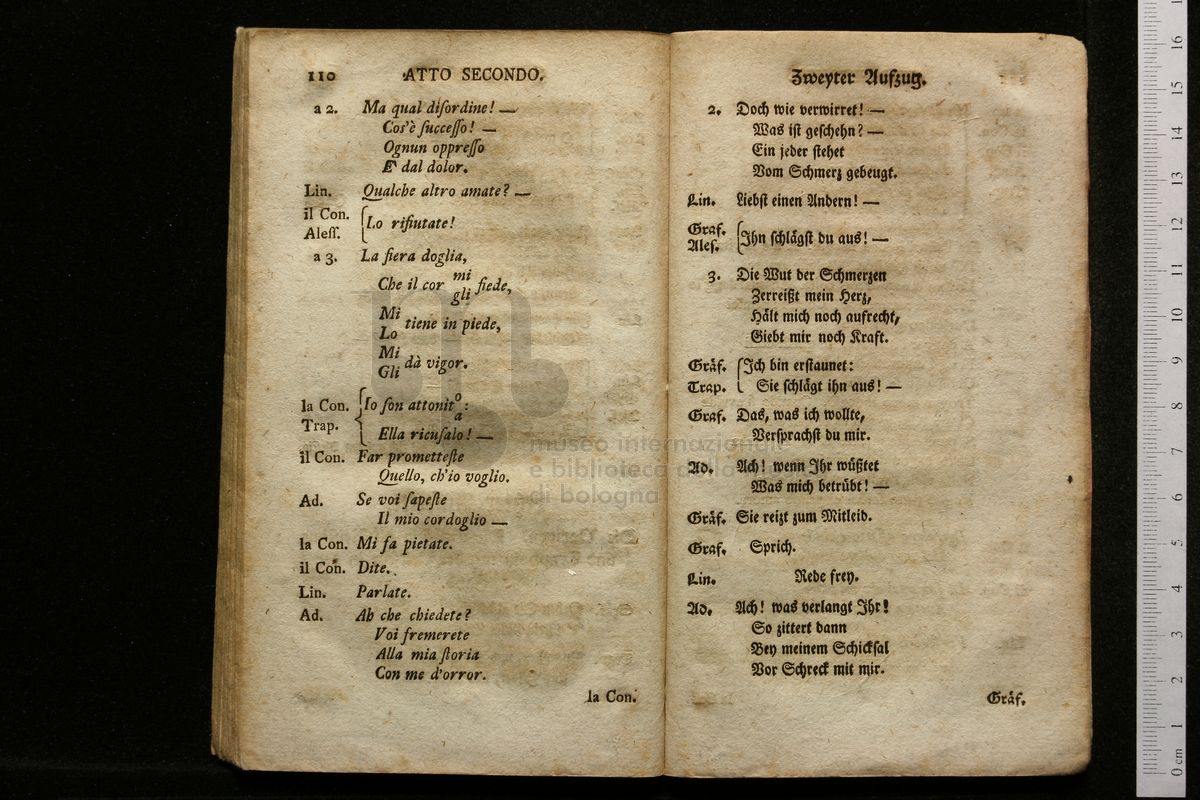 110 ATTO SECONDO.
a 2. Ma qual diſordine! —
Cos'è ſucceſſo! —
Ognun oppreſſo
E' dal dolor.
Lin. Qualche altro amate? —
il Con. Aleſſ. Lo rifiutate!
a 3. La fiera doglia,
Che il cor mi gli fiede,
Mi Lo tiene in piede,
Mi Gli dà vigor.
la Con. Io ſon attonito a:
Trap. Ella ricuſalo! —
il Con. Far prometteſte
Quello, ch'io voglio.
Ad. Se voi ſapeſte
Il mio cordoglio —
la Con. Mi fa pietate.
il Con. Dite.
Lin. Parlate.
Ad. Ah che chiedete?
Voi fremerete
Alla mia ſtoria
Con me d'orror.
la Con.
Zweyter Aufzug.
2. Doch wie verwirret! —
Was iſt geſchehn? —
Ein jeder ſtehet
Vom Schmerz gebeugt.
Lin. Liebſt einen Andern! —
Graf. Aleſ. Ihn ſchlägſt du aus! —
3. Die Wut der Schmerzen
Zerreißt mein Herz,
Hält mich noch aufrecht,
Giebt mir noch Kraft.
Gräf. Ich bin erſtaunet:
Trap. Sie ſchlägt ihn aus! —
Graf. Das, was ich wollte,
Verſprachſt du mir.
Ad. Ach! wenn Ihr wüßtet
Was mich betrübt! —
Gräf. Sie reizt zum Mitleid.
Graf. Sprich.
Lin. Rede frey.
Ad. Ach! was verlangt Ihr!
So zittert dann
Bey meinem Schickſal
Vor Schreck mit mir.
Gräf.
museo internazionale
e biblioteca della
di bologna
0 cm 1 2 3 4 5 6 7 8 9 10 11 12 13 14 15 16